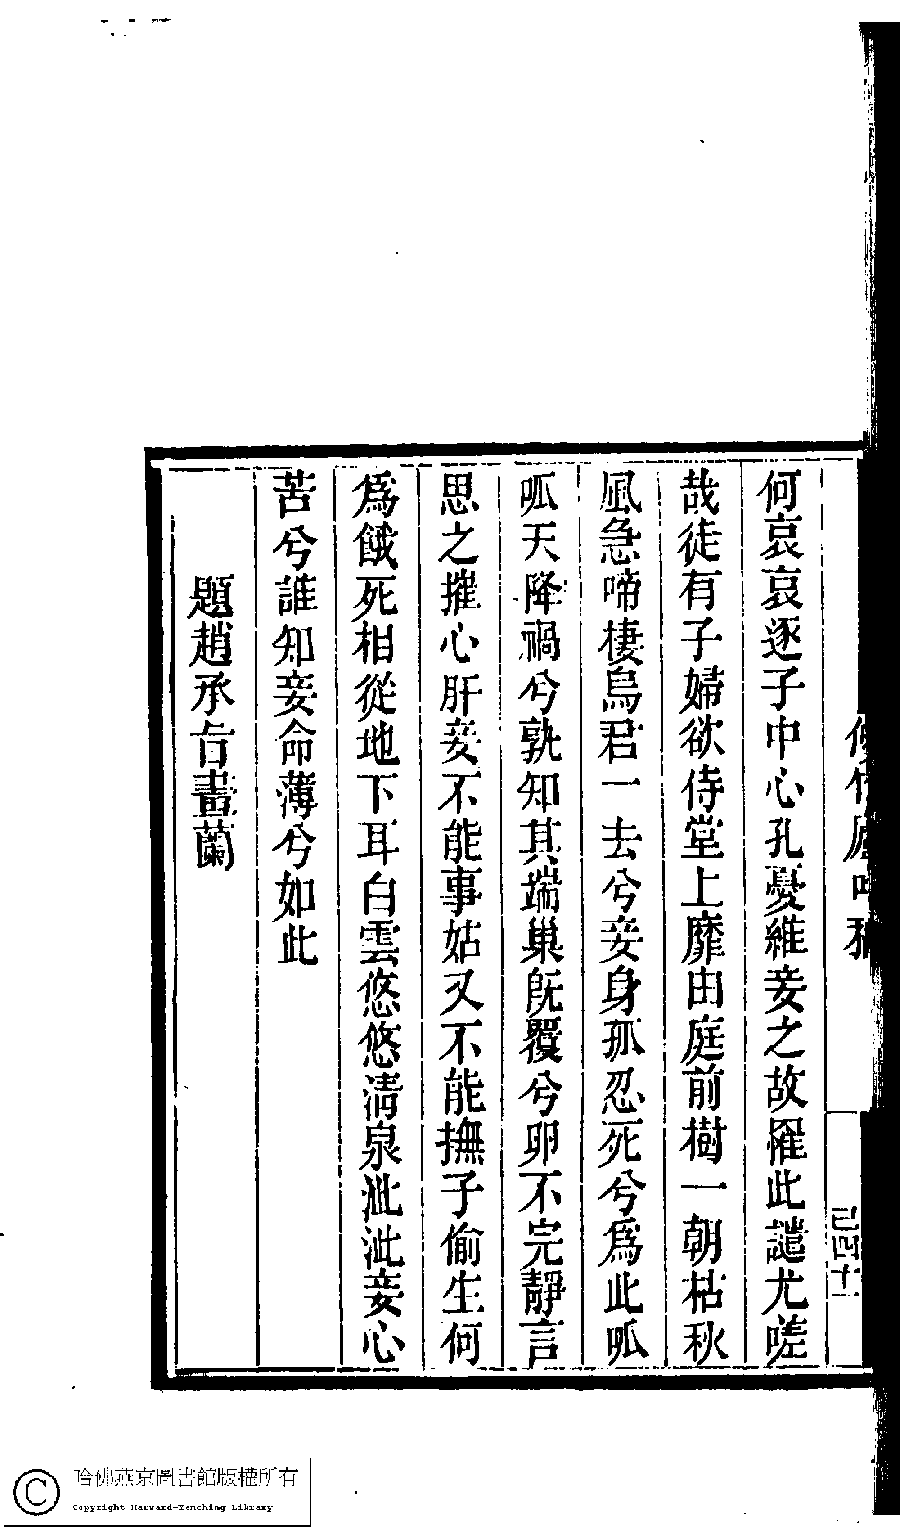 何哀哀逐子中心孔憂維妾之故罹此譴尤嗟
哉徒有子婦欲侍堂上靡由庭前樹一朝枯秋
風急啼棲烏君一去兮妾身孤忍死兮爲此呱
呱天降禍兮孰知其端巢旣覆兮卵不完靜言
思之摧心肝妾不能事姑又不能撫子偷生何
爲餓死相從地下耳白雲悠悠淸泉泚泚妾心
苦兮誰知妾命薄兮如此
題趙承旨畫蘭
哈佛燕京圖書館版權所有
Copyright Harvard-Yenching Library